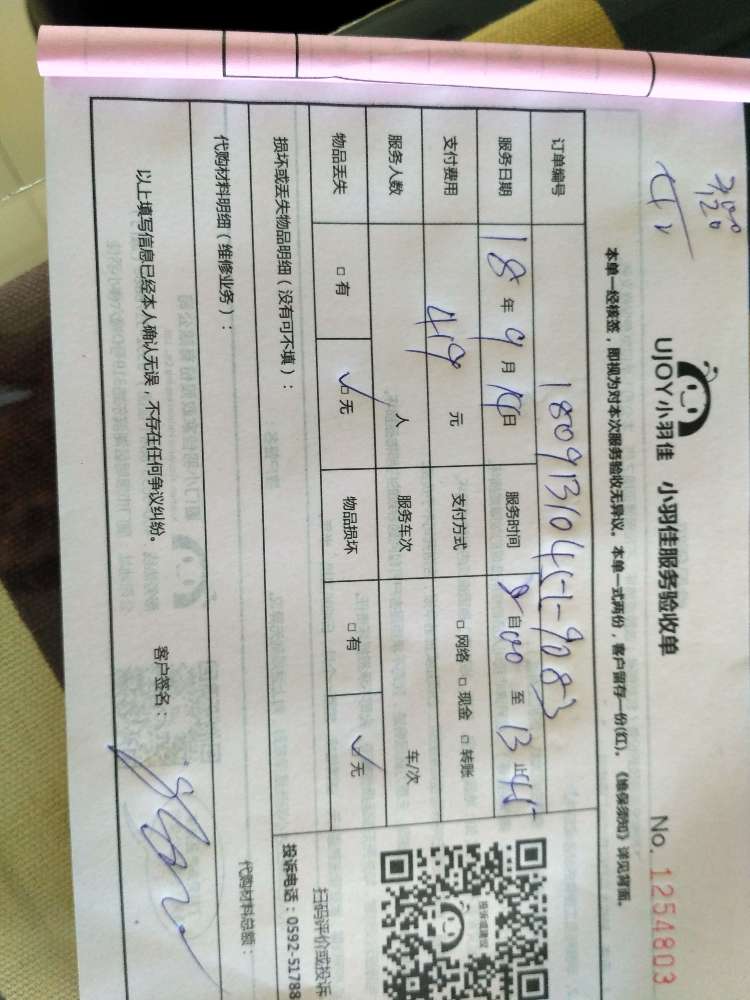 UJOY小羽佳 小羽佳服务验收单
No. 1254803
本单一经核签，即视为对本次服务验收无异议。本单一式两份，客户留存一份(红)。《维保须知》详见背面。
订单编号
服务日期 18 年 9 月 日 服务时间 自 8 00 至 13 45 止
支付费用 49 元 支付方式 □ 网络 □ 现金 □ 转账
服务人数 人 服务车次 车/次
物品丢失 □ 有 ✓□ 无 物品损坏 □ 有 ✓ 无
损坏或丢失物品明细（没有可不填）：
代购材料明细（维修业务）：
代购材料总额：
以上填写信息已经本人确认无误，不存在任何争议纠纷。
客户签名：
投诉或建议
扫码评价或投诉
投诉电话：0592-51788